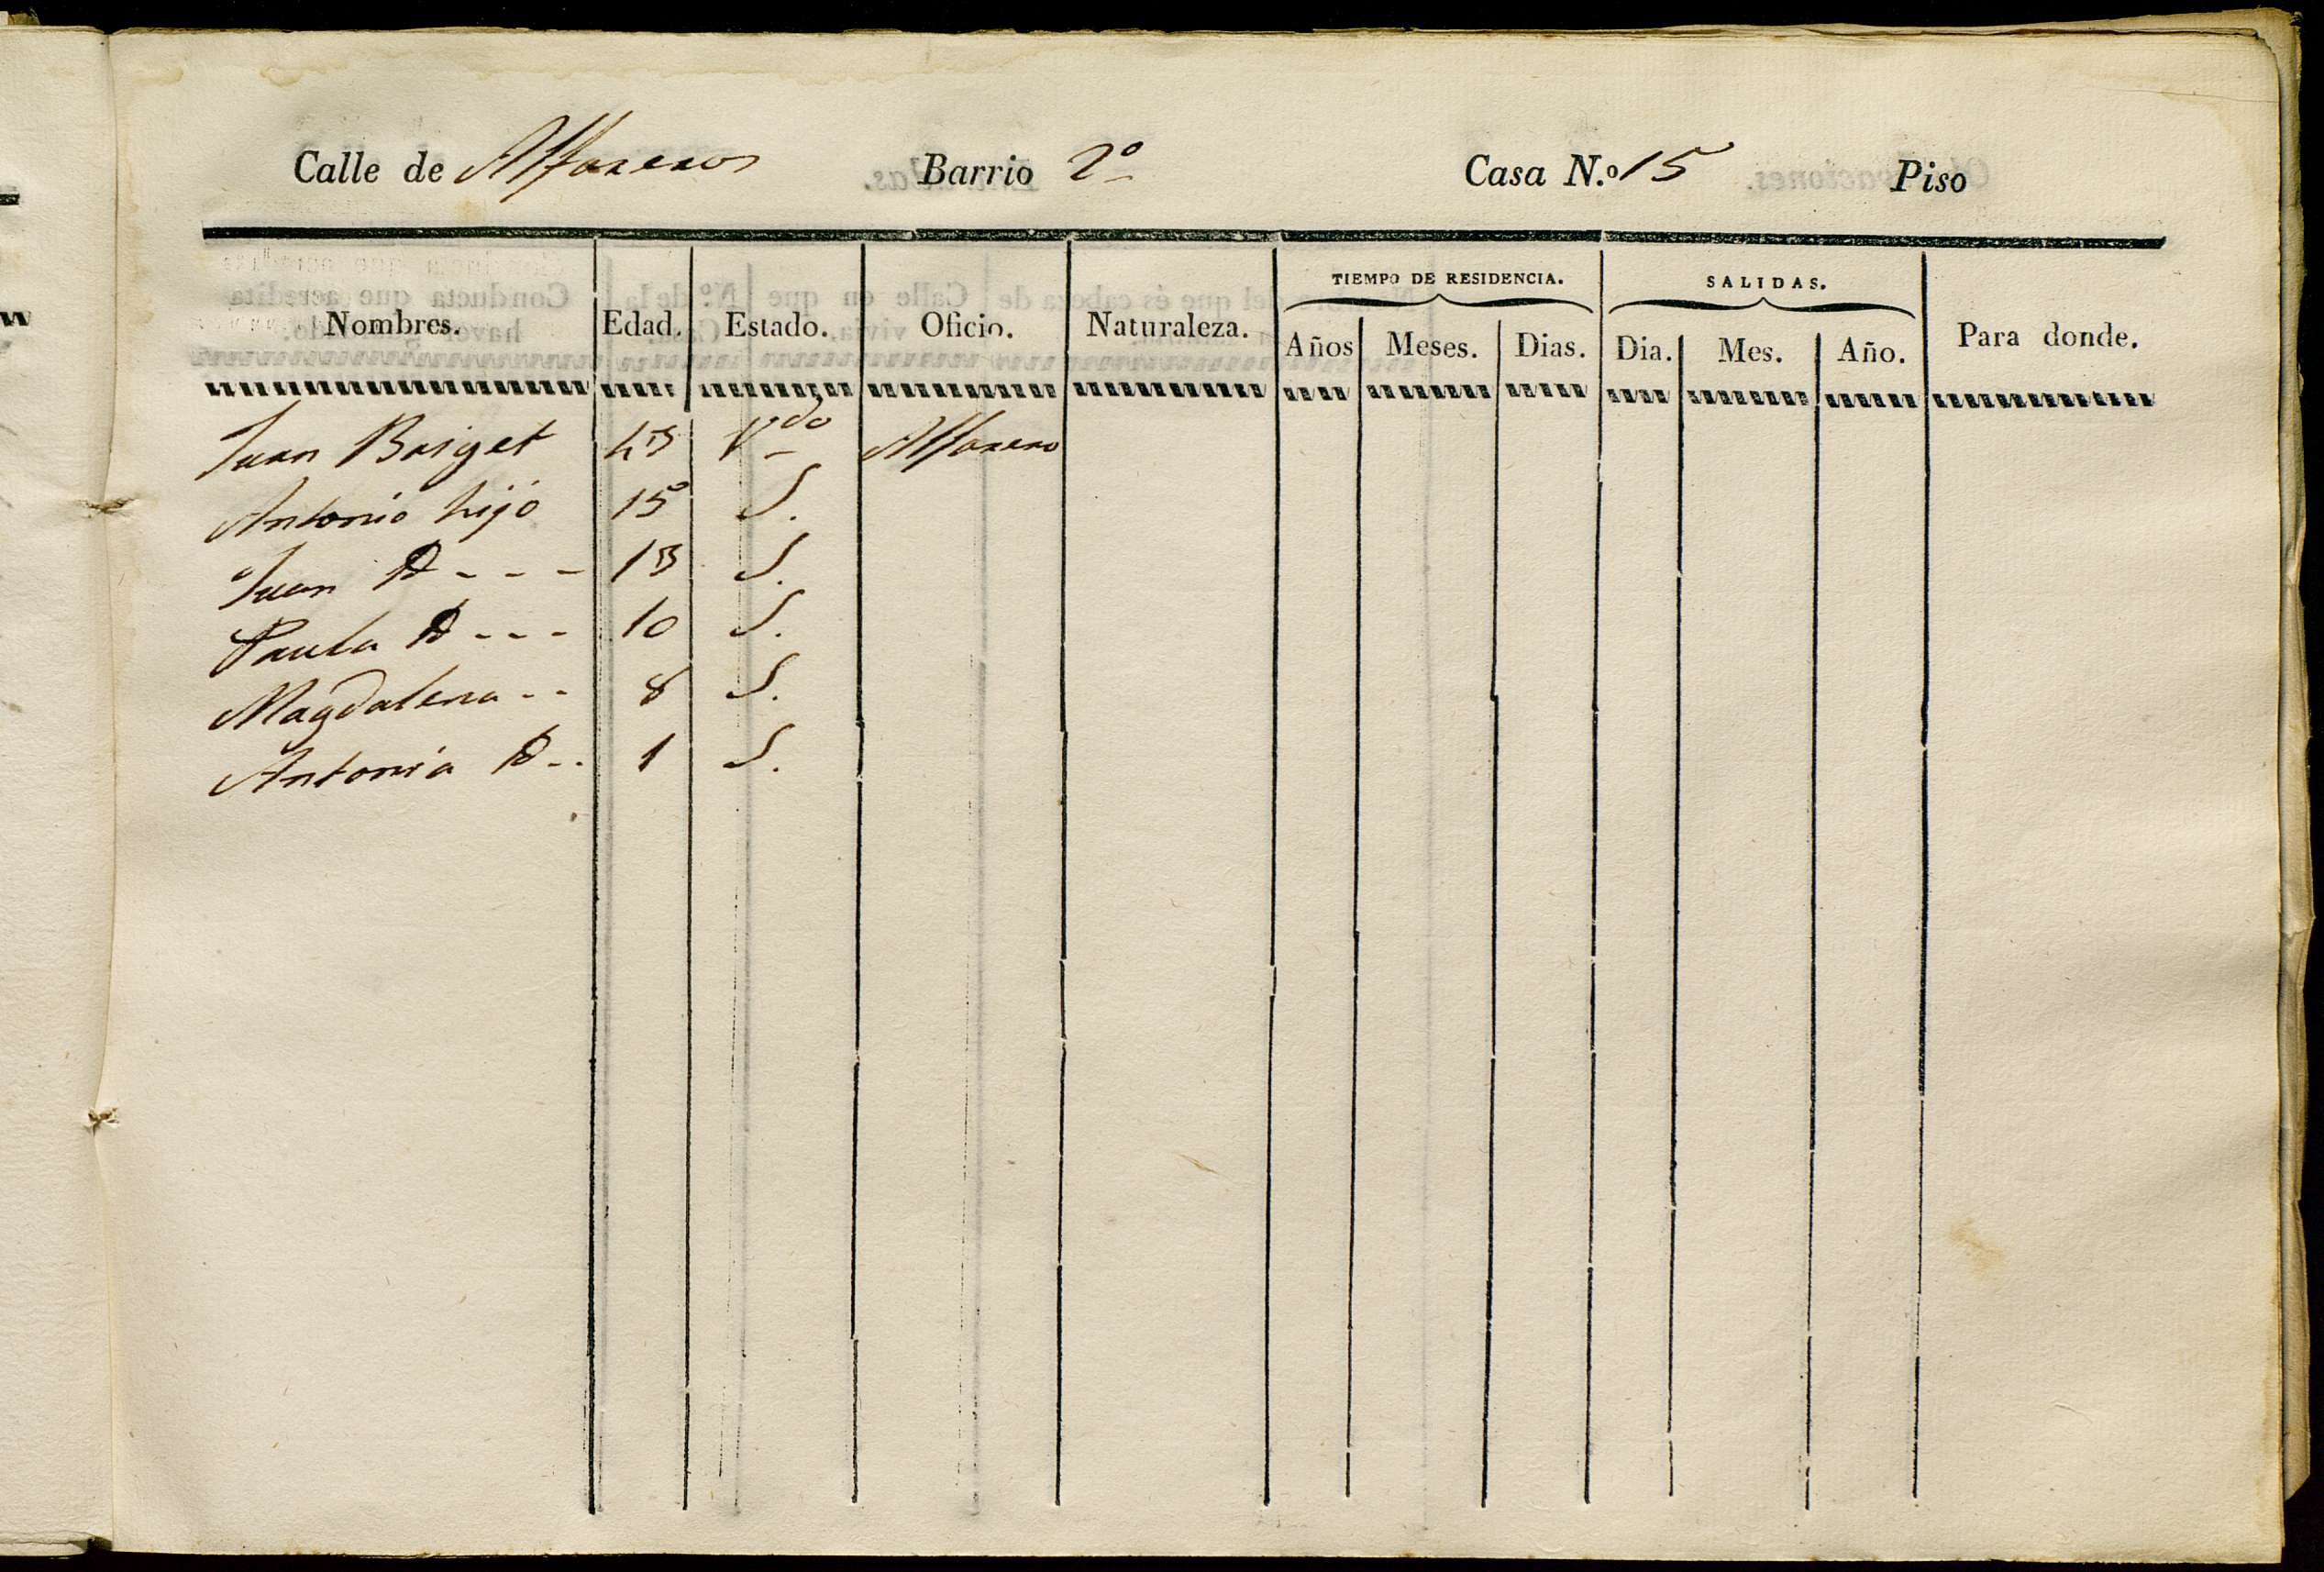 Calle de Alfareros Barrio 2º Casa N.º 15 Piso
TIEMPO DE RESIDENCIA. SALIDAS.
Nombres. Edad. Estado. Oficio. Naturaleza. Años Meses. Dias. Dia. Mes. Año. Para donde.
Juan Briget 43 Vdo Alfarero
Antonio hijo 15 S.
Juan Yd - - - 13 S.
Paula Yd - - - 10 S.
Magdalena - - 8 S.
Antonia Yd - - 1 S.